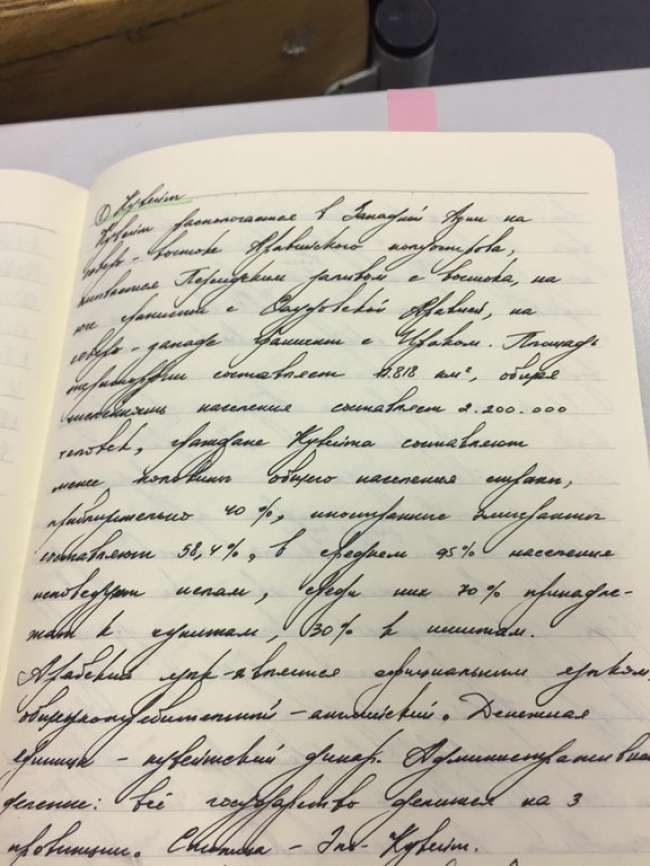 ① Кувейт
Кувейт располагается в Западной Азии на
северо-востоке Аравийского полуострова,
омывается Персидским заливом с востока, на
юге граничит с Саудовской Аравией, на
северо-западе граничит с Ираком. Площадь
территории составляет 17.818 км², общая
численность населения составляет 2.200.000
человек, граждане Кувейта составляют
менее половины общего населения страны,
приблизительно 40%, иностранные эмигранты
составляют 58,4%, в среднем 95% населения
исповедуют ислам, среди них 70% принадле-
жат к суннитам, 30% к шиитам.
Арабский язык является официальным языком,
общеупотребительный - английский. Денежная
единица - кувейтский динар. Административное
деление: всё государство делится на 3
провинции. Столица - Эль-Кувейт.